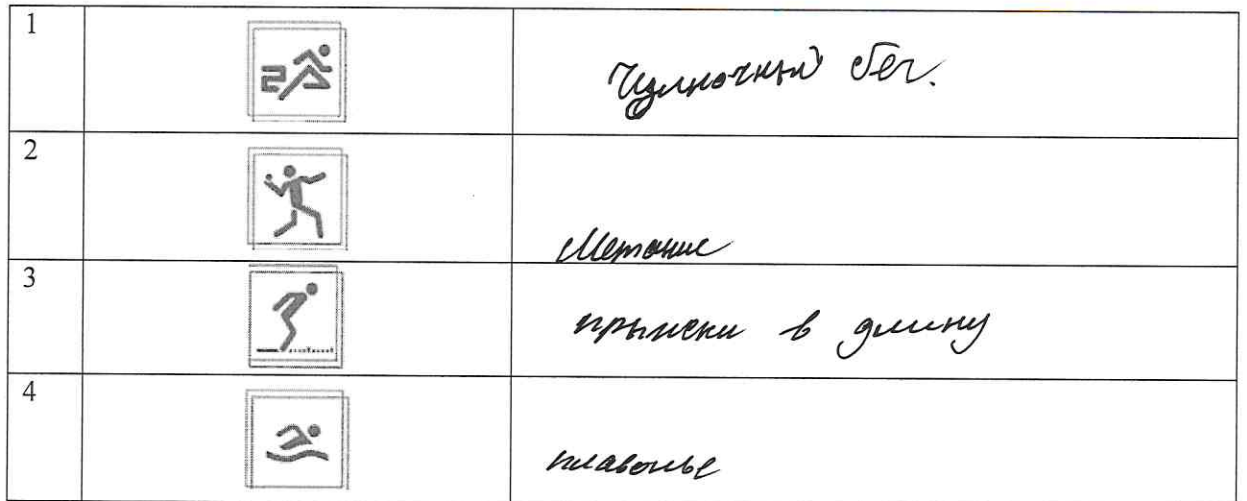 1 Чулночный бег.
2 Метание
3 прыжки в длину
4 плавонье